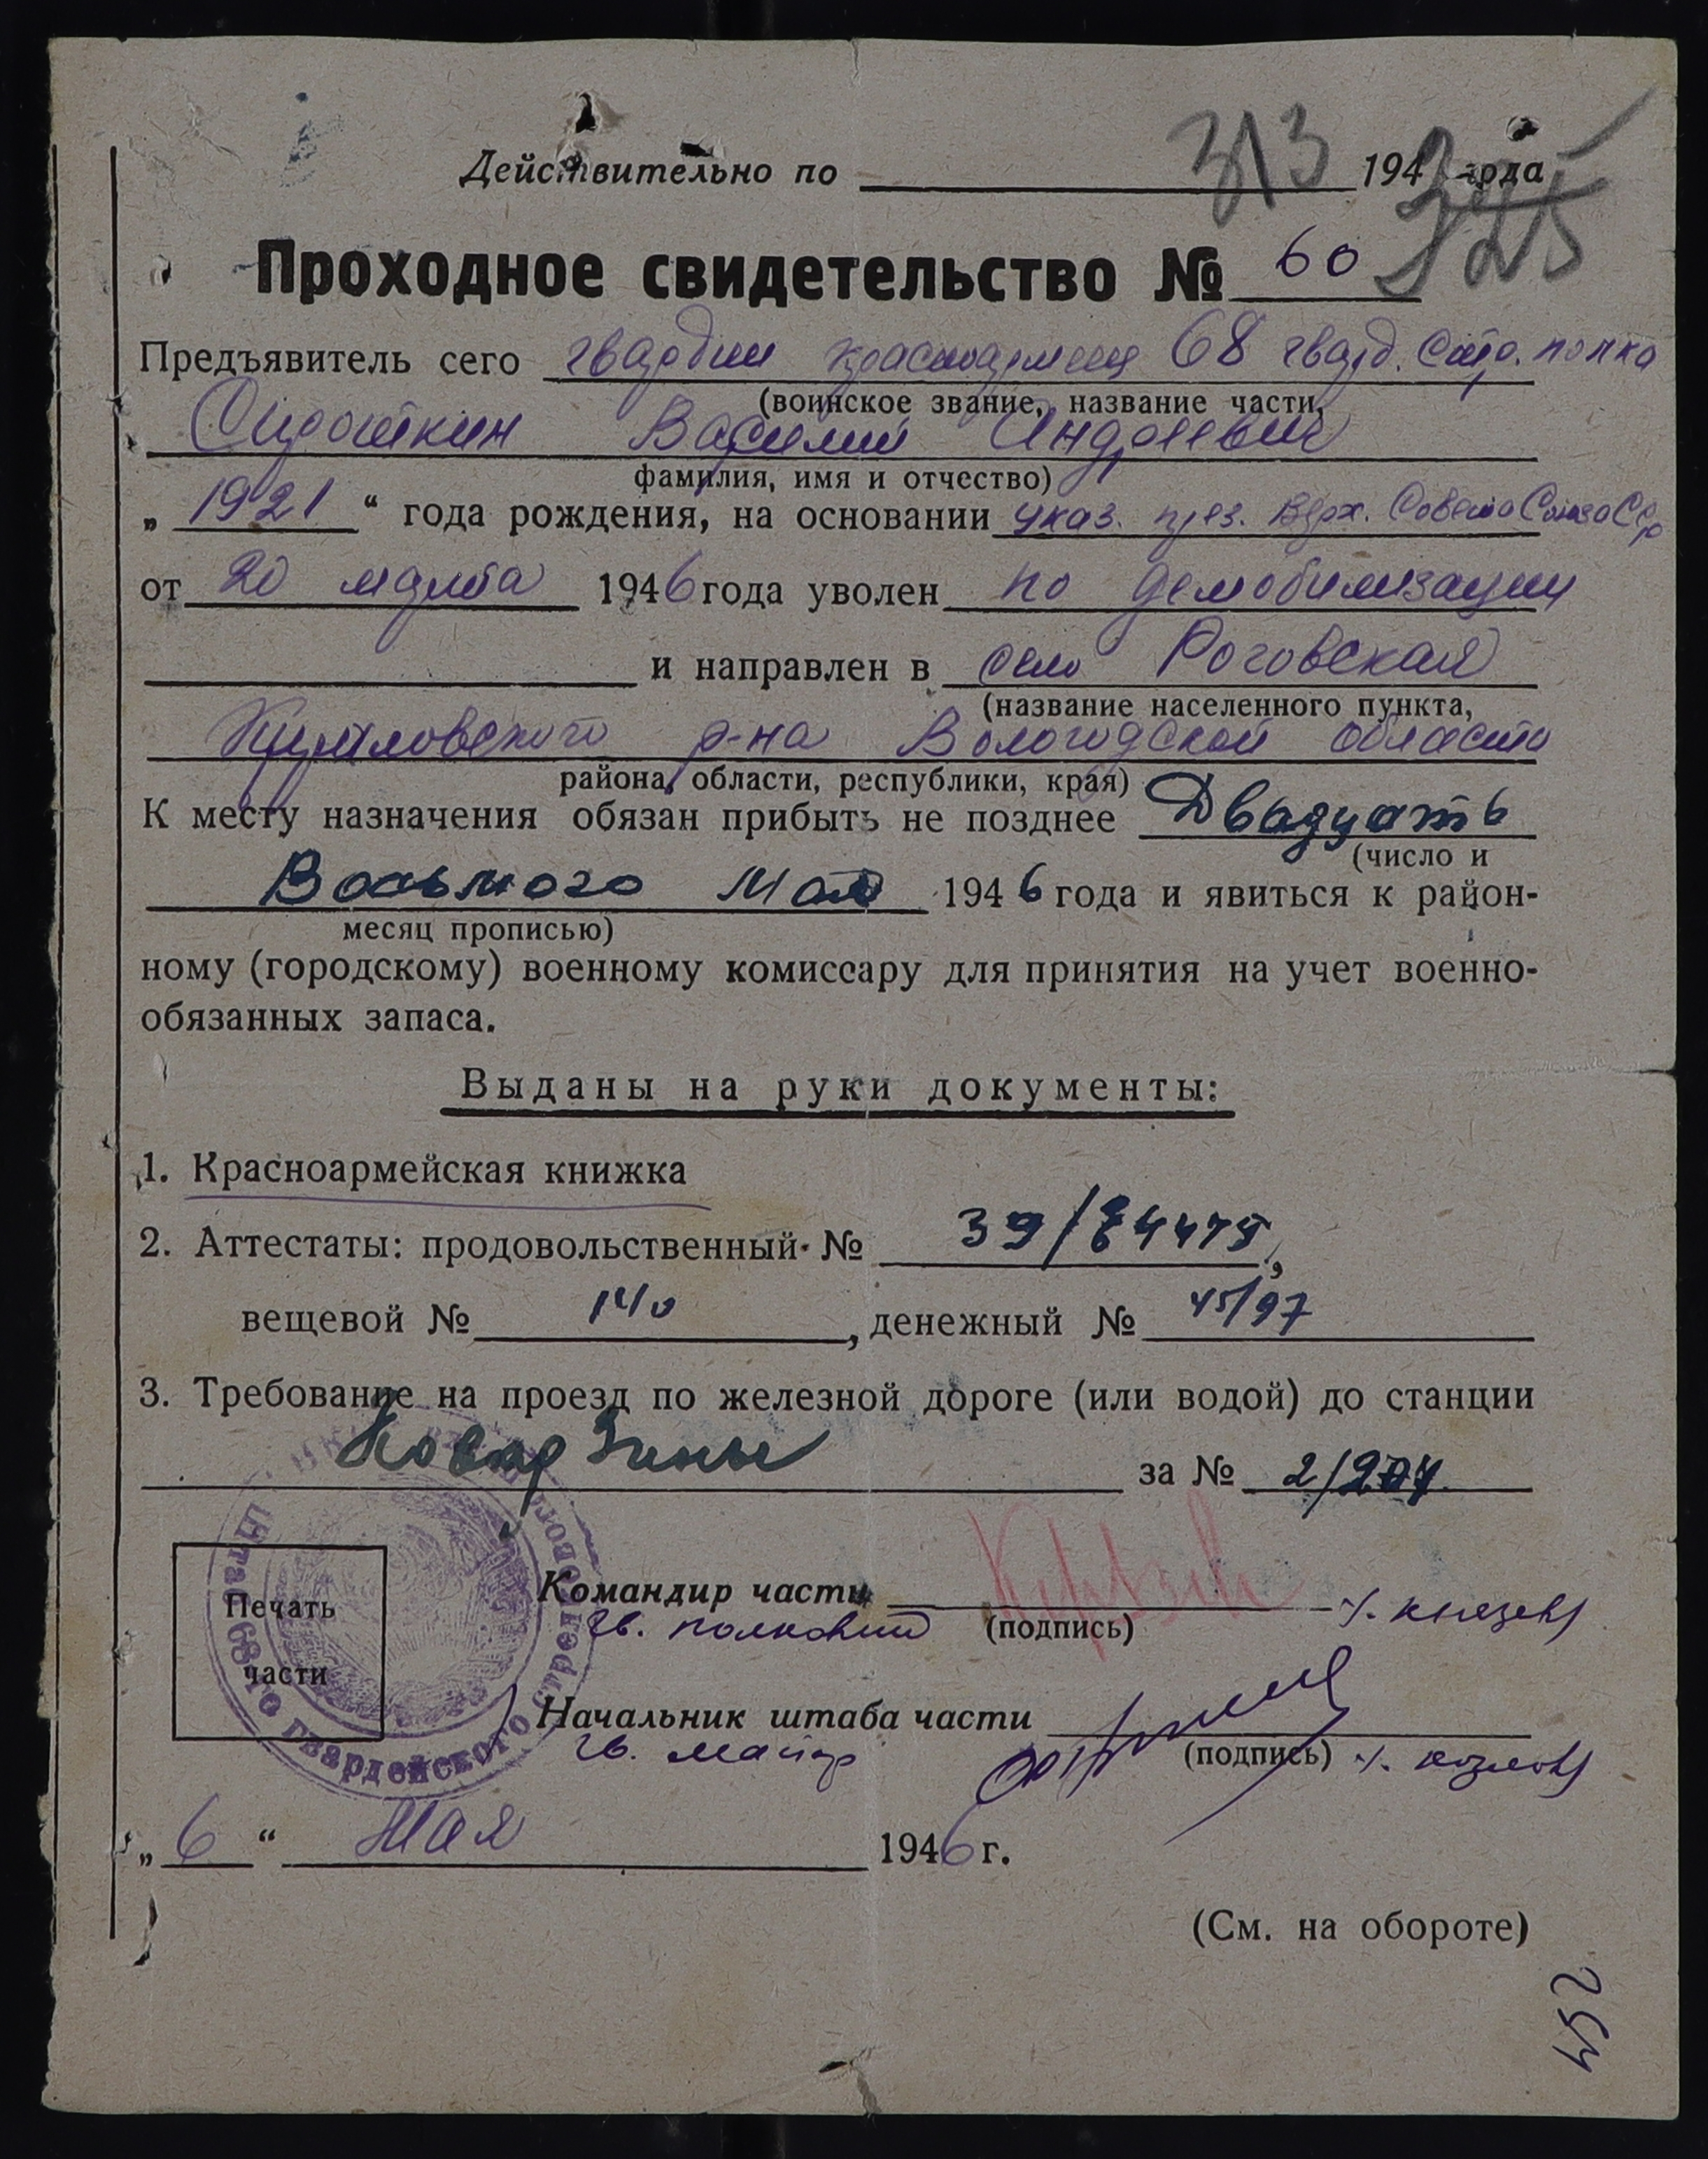 313
Действительно по 194 года
325
Проходное свидетельство № 60
Предъявитель сего гвардии красноармеец 68 гвард. стр. полка
(воинское звание, название части,
Сироткин Василий Андреевич
фамилия, имя и отчество)
„ 1921 “ года рождения, на основании указ. през. Верх. Совета Союза ССР
от 20 марта 1946 года уволен по демобилизации
и направлен в село Роговская
(название населенного пункта,
р-на Вологодской области
района, области, республики, края)
К месту назначения обязан прибыть не позднее Двадцать
(число и
Восьмого Мая 1946 года и явиться к район-
месяц прописью)
ному (городскому) военному комиссару для принятия на учет военно-
обязанных запаса.
Выданы на руки документы:
1. Красноармейская книжка
2. Аттестаты: продовольственный № ,
вещевой № 140 , денежный № 45/97
3. Требование на проезд по железной дороге (или водой) до станции
за № 2/204
Штаб 68го гвардейского стрелкового
Печать
части
Командир части
гв. полковник (подпись) /. Князев/
Начальник штаба части
гв. майор (подпись) /. Козлов/
„ 6 “ Мая 1946 г.
(См. на обороте)
254